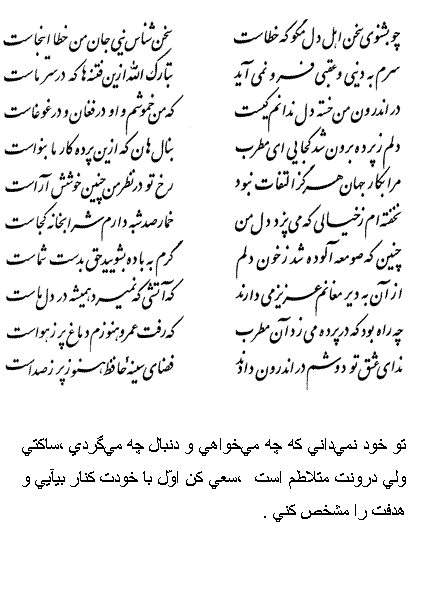 چو بشنوی سخن اهل دل مگو که خطاست سخن شناس نیی جان من خطا اینجاست
سرم به دینی و عقبی فرو نمی آید تبارک الله ازین فتنه ها که در سر ماست
در اندرون من خسته دل ندانم کیست که من خموشم و او در فغان و در غوغاست
دلم ز پرده برون شد کجایی ای مطرب بنال هان که ازین پرده کار ما بنواست
مرا بکار جهان هرگز التفات نبود رخ تو در نظر من چنین خوشش آراست
نخفته ام ز خیالی که می پزد دل من خمار صد شبه دارم شرابخانه کجاست
چنین که صومعه آلوده شد ز خون دلم گرم به باده بشویید حق بدست شماست
از آن به دیر مغانم عزیز می دارند که آتشی که نمیرد همیشه در دل ماست
چه راه بود که در پرده می زد آن مطرب که رفت عمر و هنوزم دماغ پر ز هواست
ندای عشق تو دوشم در اندرون دادند فضای سینهٔ حافظ هنوز پر ز صداست
تو خود نمي‌داني كه چه مي‌خواهي و دنبال چه مي‌گردي ،ساكتي
ولي درونت متلاطم است ،سعي كن اوّل با خودت كنار بيآيي و
هدفت را مشخص كني .